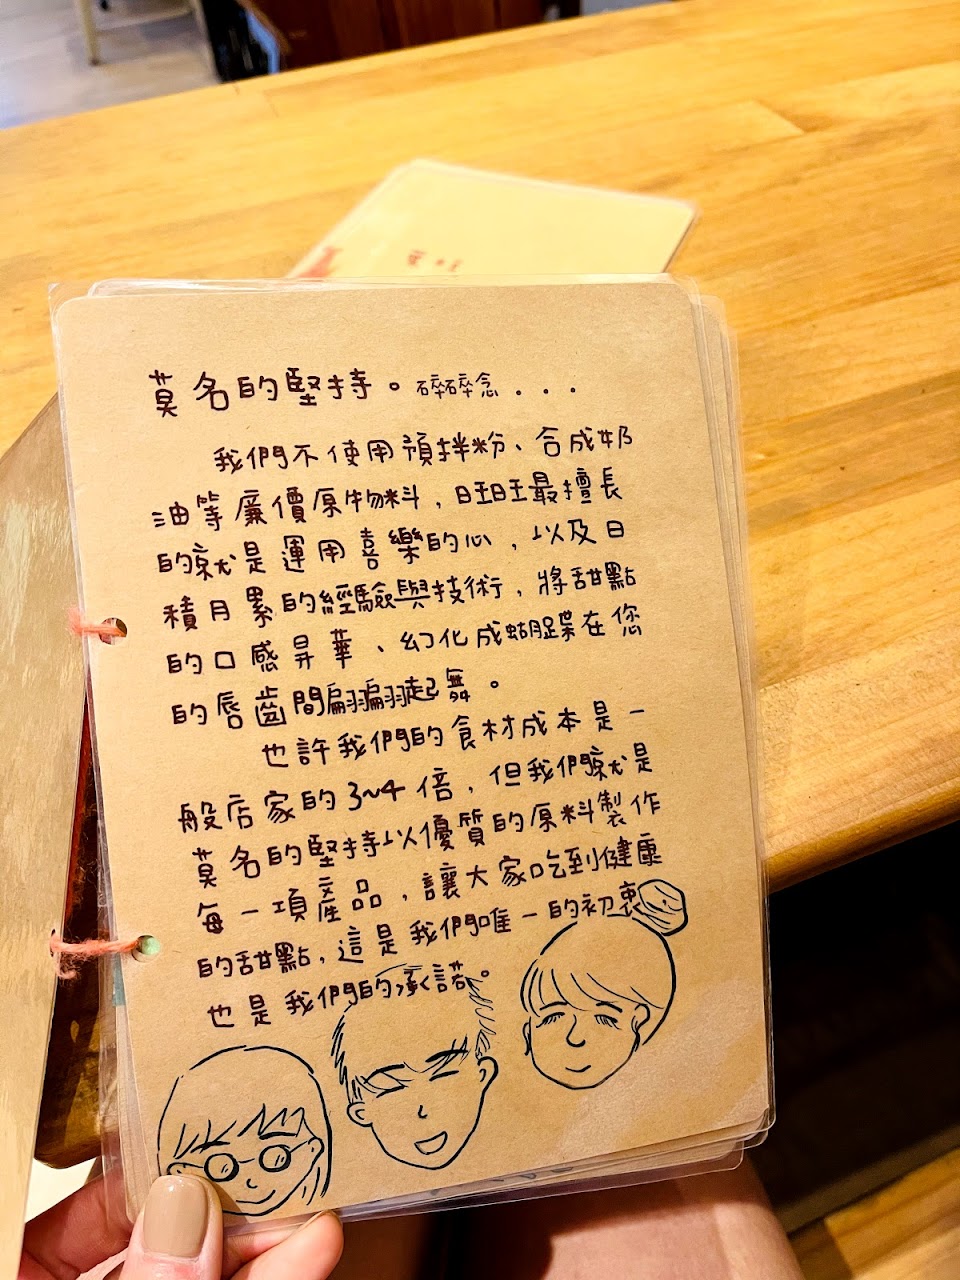 莫名的堅持。碎碎念...
我們不使用預拌粉、合成奶
油等廉價原物料,旺旺最擅長
的就是運用喜樂的心,以及日
積月累的經驗與技術,將甜點
的口感昇華、幻化成蝴蝶在您
的唇齒間翩翩起舞。
也許我們的食材成本是一
般店家的3~4倍,但我們就是
莫名的堅持以優質的原料製作
每一項產品,讓大家吃到健康
的甜點,這是我們唯一的初衷
也是我們的承諾。